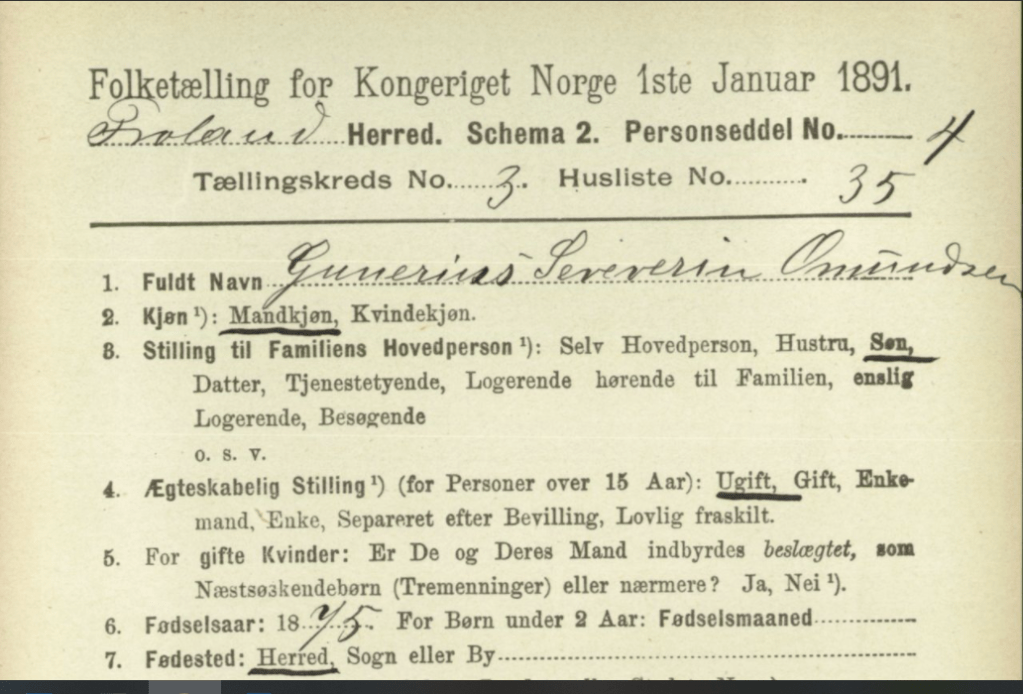 Folketælling for Kongeriget Norge 1ste Januar 1891.
Froland Herred. Schema 2. Personseddel No. 4
Tællingskreds No. 3. Husliste No. 35
1. Fuldt Navn Gunerius Severin Omundsen
2. Kjøn ¹): Mandkjøn, Kvindekjøn.
3. Stilling til Familiens Hovedperson ¹): Selv Hovedperson, Hustru, Søn,
Datter, Tjenestetyende, Logerende hørende til Familien, enslig
Logerende, Besøgende
o. s. v.
4. Ægteskabelig Stilling ¹) (for Personer over 15 Aar): Ugift, Gift, Enke-
mand, Enke, Separeret efter Bevilling, Lovlig fraskilt.
5. For gifte Kvinder: Er De og Deres Mand indbyrdes beslægtet, som
Næstsøskendebørn (Tremenninger) eller nærmere? Ja, Nei ¹).
6. Fødselsaar: 1875. For Børn under 2 Aar: Fødselsmaaned
7. Fødested: Herred, Sogn eller By